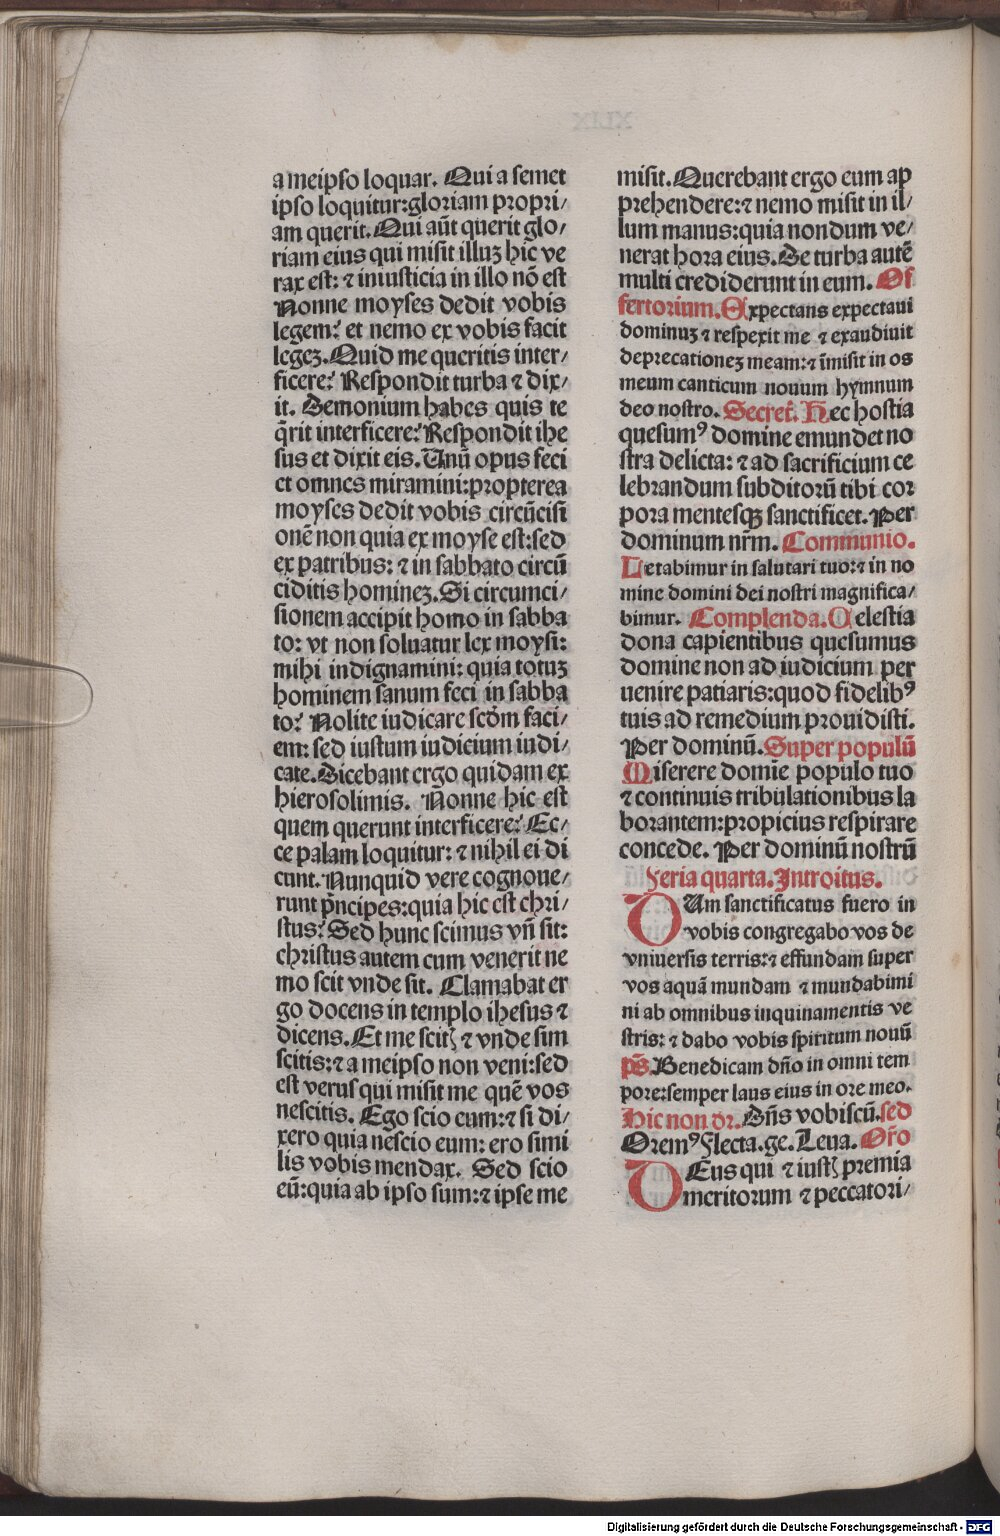 a meipso loquar. Qui a semet
ipso loquitur:gloriam propri/
am querit. Qui aūt querit glo/
riam eius qui misit illuʒ hic ve
rax est: ⁊ iniusticia in illo nō est
Nonne moyses dedit vobis
legem? et nemo ex vobis facit
legeʒ. Quid me queritis inter/
ficere? Respondit turba ⁊ dix/
it. Demonium habes quis te
q̄rit interficere? Respondit ihe
sus et dixit eis. Unū opus feci
et omnes miramini:propterea
moyses dedit vobis circūcisi
onē non quia ex moyse est:sed
ex patribus: ⁊ in sabbato circū
ciditis homineʒ. Si circumci/
sionem accipit homo in sabba
to: vt non soluatur lex moysi:
mihi indignamini: quia totuʒ
hominem sanum feci in sabba
to? Nolite iudicare scōm faci/
em: sed iustum iudicium iudi/
cate. Dicebant ergo quidam ex
hierosolimis. Nonne hic est
quem querunt interficere? Ec/
ce palam loquitur: ⁊ nihil ei di
cunt. Nunquid vere cognoue/
runt p̄ncipes:quia hic est chri/
stus? Sed hunc scimus vñ sit:
christus autem cum venerit ne
mo scit vnde sit. Clamabat er
go docens in templo ihesus ⁊
dicens. Et me scitꝭ ⁊ vnde sim
scitis:⁊ a meipso non veni:sed
est verus qui misit me quē vos
nescitis. Ego scio eum:⁊ si di/
xero quia nescio eum: ero simi
lis vobis mendax. Sed scio
eū:quia ab ipso sum:⁊ ipse me
misit. Querebant ergo eum ap
prehendere:⁊ nemo misit in il/
lum manus:quia nondum ve/
nerat hora eius. De turba autē
multi crediderunt in eum. Of
fertorium. Expectans expectaui
dominuʒ ⁊ respexit me ⁊ exaudiuit
deprecationeʒ meam:⁊ īmisit in os
meum canticum nouum hymnum
deo nostro. Secret̄. Hec hostia
quesumꝰ domine emundet no
stra delicta: ⁊ ad sacrificium ce
lebrandum subditorū tibi cor
pora mentesqꝫ sanctificet. Per
dominum nr̄m. Communio.
Letabimur in salutari tuo:⁊ in no
mine domini dei nostri magnifica/
bimur. Complenda. Celestia
dona capientibus quesumus
domine non ad iudicium per
uenire patiaris:quod fidelibꝰ
tuis ad remedium prouidisti.
Per dominū. Super populū
Miserere domīe populo tuo
⁊ continuis tribulationibus la
borantem:propicius respirare
concede. Per dominū nostrū
Feria quarta. Introitus.
DUm sanctificatus fuero in
vobis congregabo vos de
vniuersis terris:⁊ effundam super
vos aquā mundam ⁊ mundabimi
ni ab omnibus inquinamentis ve
stris: ⁊ dabo vobis spiritum nouū
p̄s. Benedicam dño in omni tem
pore:semper laus eius in ore meo.
Hic non dr. Dñs vobiscū. sed
Oremꝰ Flecta. ge. Leua. Or̄o
DEus qui ⁊ iustꝭ premia
meritorum ⁊ peccatori/
Digitalisierung gefördert durch die Deutsche Forschungsgemeinschaft - DFG